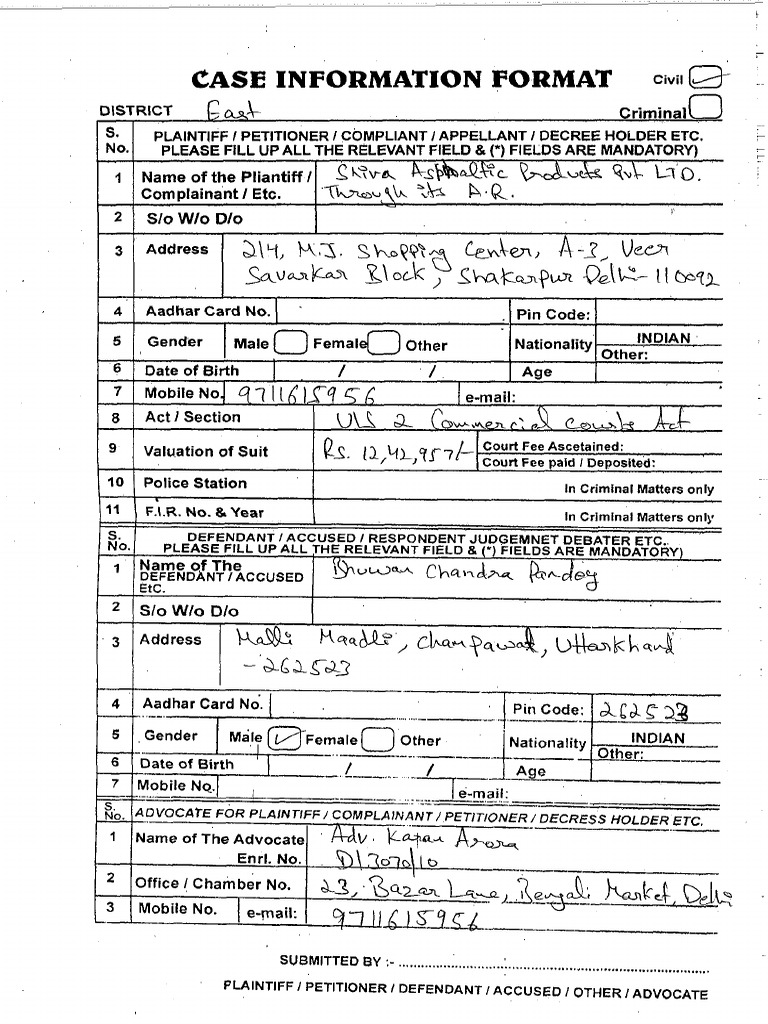 CASE INFORMATION FORMAT
Civil
DISTRICT East
Criminal
S. No. PLAINTIFF / PETITIONER / COMPLIANT / APPELLANT / DECREE HOLDER ETC.
PLEASE FILL UP ALL THE RELEVANT FIELD & (*) FIELDS ARE MANDATORY)
1 Name of the Pliantiff / Shiva Asphaltic Products Pvt LTD.
Complainant / Etc. Through its A.R.
2 S/o W/o D/o
3 Address 214, M.J. Shopping Center, A-3, Veer
Savarkar Block, Shakarpur Delhi-110092
4 Aadhar Card No. Pin Code:
5 Gender Male Female Other Nationality INDIAN
Other:
6 Date of Birth / / Age
7 Mobile No. 9711615956 e-mail:
8 Act / Section U/S 2 Commercial Courts Act
9 Valuation of Suit Rs. 12,42,957/- Court Fee Ascetained:
Court Fee paid / Deposited:
10 Police Station In Criminal Matters only
11 F.I.R. No. & Year In Criminal Matters only
S. No. DEFENDANT / ACCUSED / RESPONDENT JUDGEMNET DEBATER ETC.
PLEASE FILL UP ALL THE RELEVANT FIELD & (*) FIELDS ARE MANDATORY)
1 Name of The Bhuwan Chandra Pandey
DEFENDANT / ACCUSED
EtC.
2 S/o W/o D/o
3 Address Malli Maadli, Champawat, Uttarkhand
-262523
4 Aadhar Card No. Pin Code: 262523
5 Gender Male Female Other Nationality INDIAN
Other:
6 Date of Birth / / Age
7 Mobile No. e-mail:
S. No. ADVOCATE FOR PLAINTIFF / COMPLAINANT / PETITIONER / DECRESS HOLDER ETC.
1 Name of The Advocate Adv. Karan Arora
Enrl. No. D/3070/10
2 Office / Chamber No. 23, Bazar Lane, Bengali Market, Delhi
3 Mobile No. e-mail: 9711615956
SUBMITTED BY :- ............
PLAINTIFF / PETITIONER / DEFENDANT / ACCUSED / OTHER / ADVOCATE